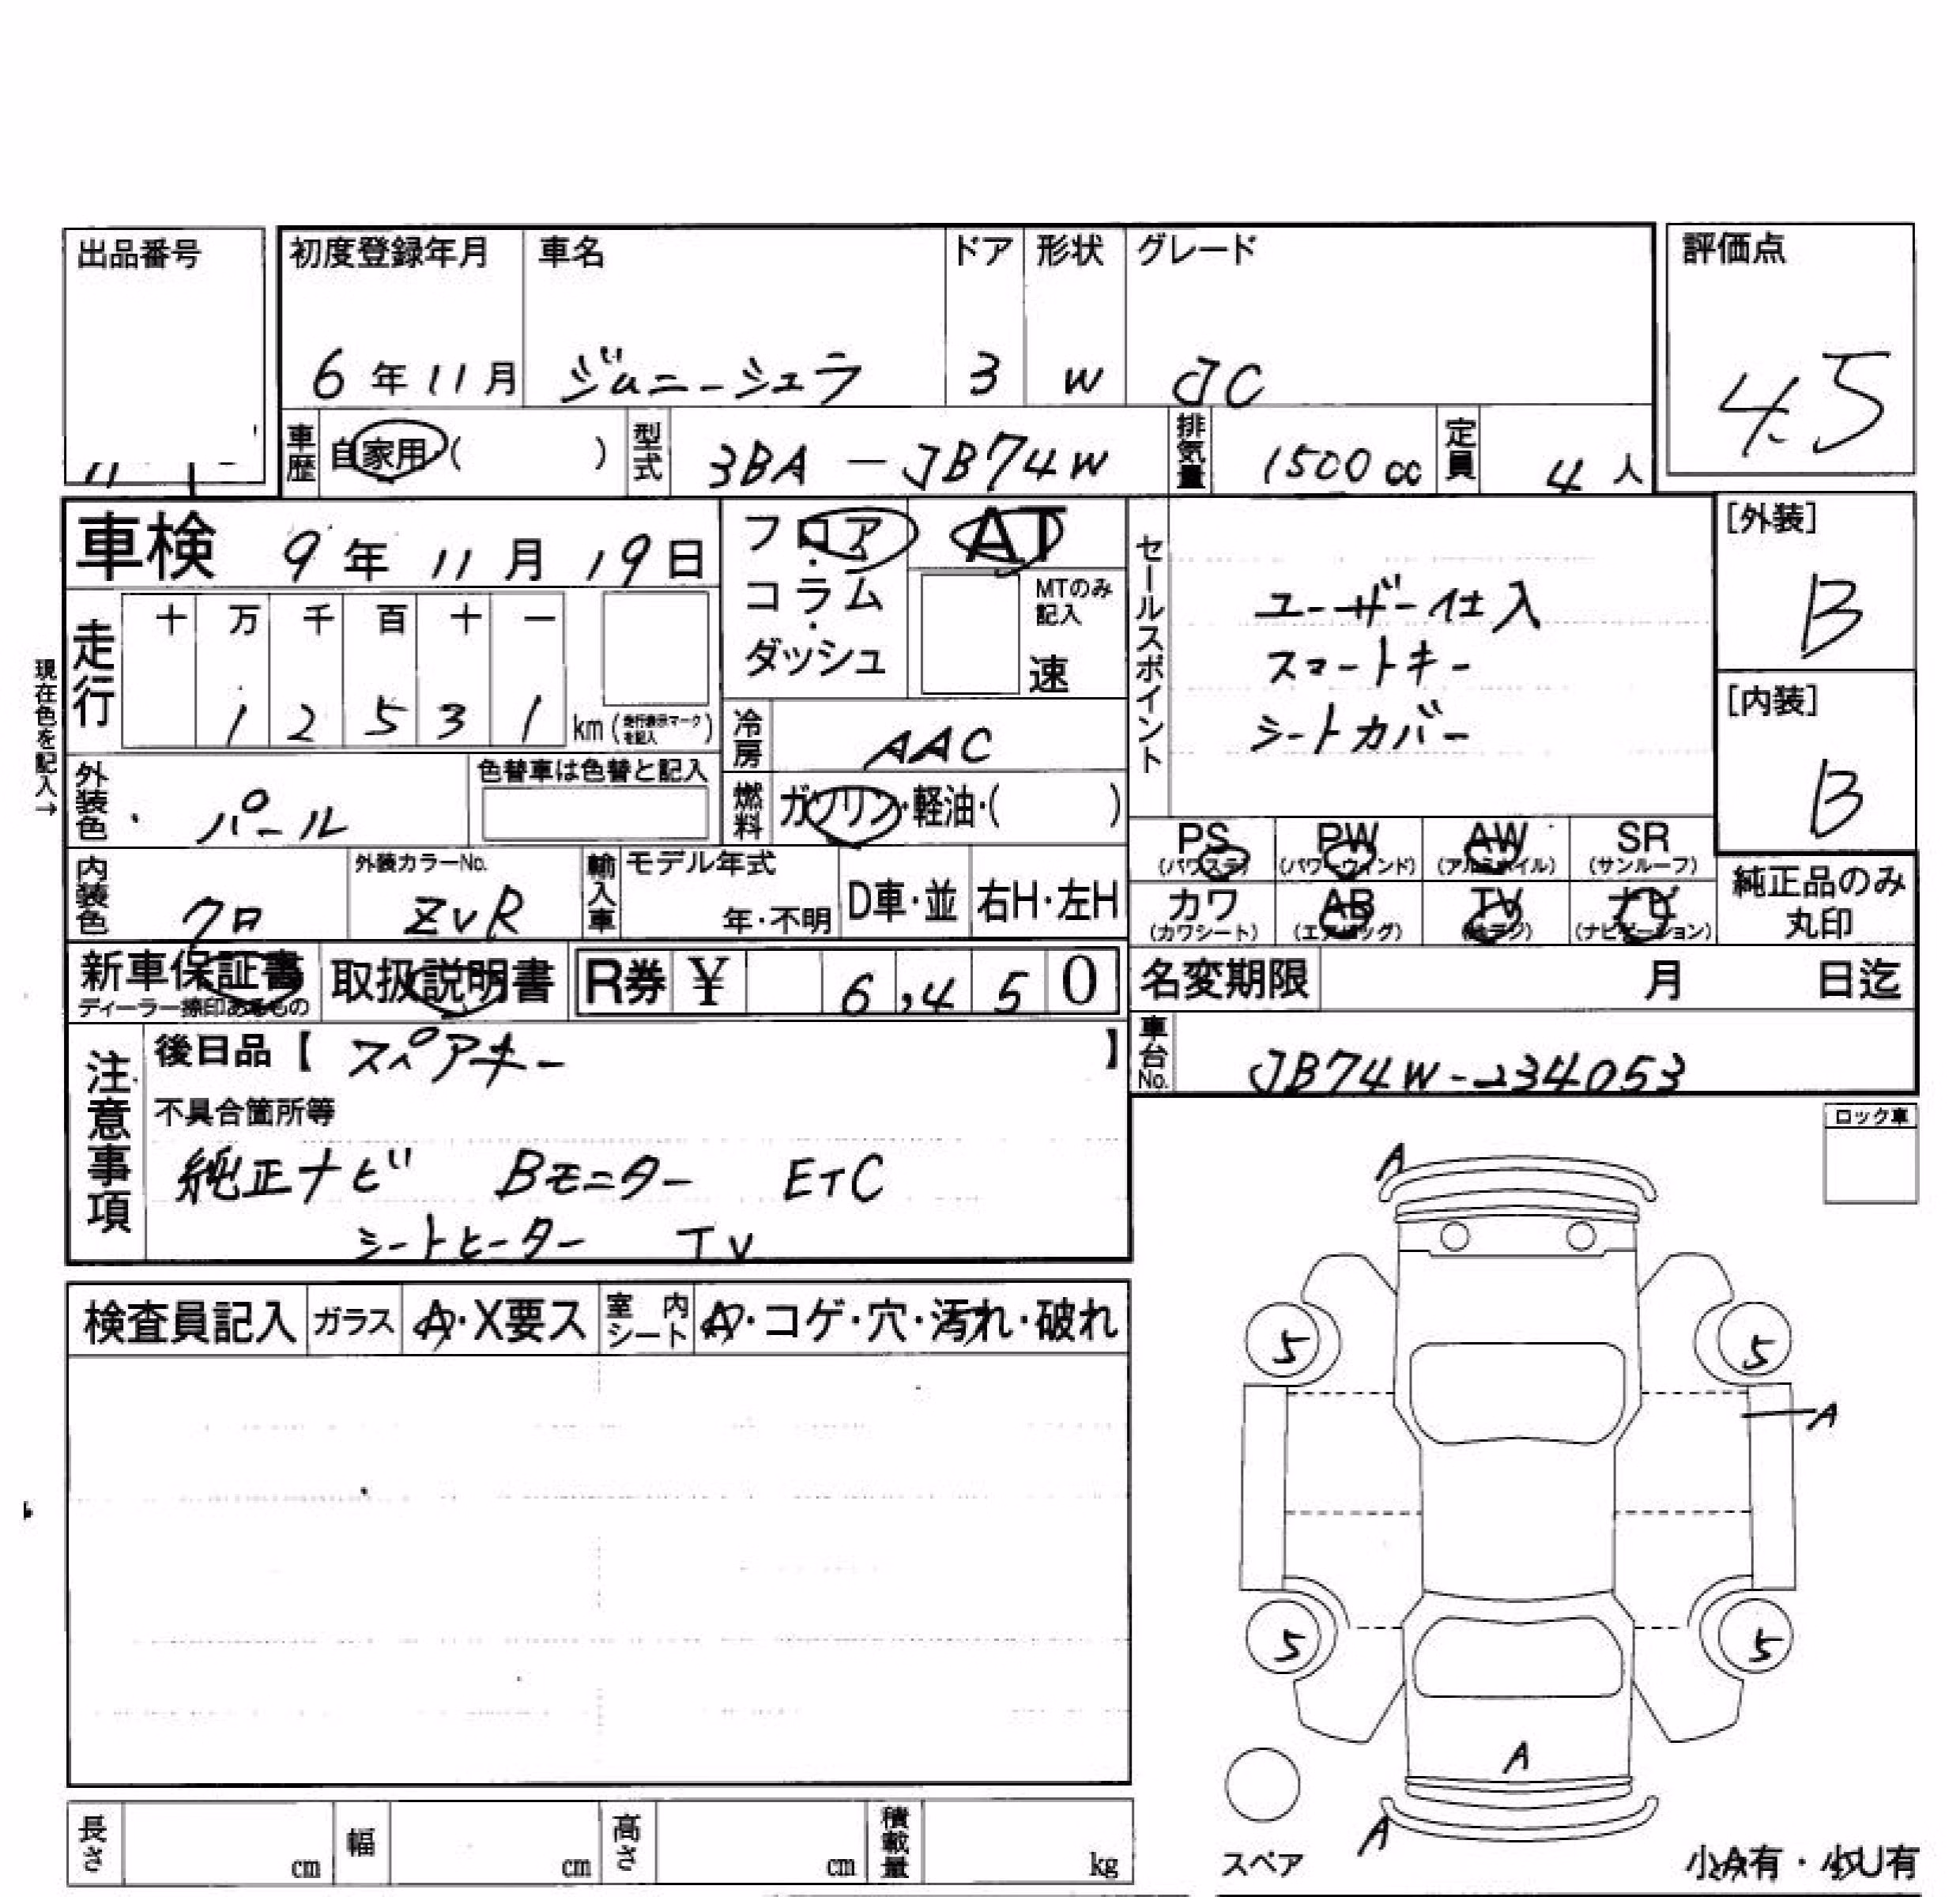 出品番号
初度登録年月 車名 ドア 形状 グレード 評価点
6年11月 ジムニーシエラ 3 W JC 4.5
車歴 自家用( ) 型式 3BA-JB74W 排気量 1500cc 定員 4人
車検 9年11月19日
フロア・コラム・ダッシュ
AT
MTのみ記入
速
セールスポイント
ユーザー仕入
スマートキー
シートカバー
[外装]
B
[内装]
B
現在色を記入→
走行 十 万 千 百 十 一
1 2 5 3 1 km(走行表示マークを記入)
冷房 AAC
外装色 パール 色替車は色替と記入
燃料 ガソリン・軽油・( )
PS PW AW SR
(パワステ) (パワーウィンド) (アルミホイル) (サンルーフ)
カワ AB TV ナビ
(カワシート) (エアバッグ) (ナビゲーション)
純正品のみ
丸印
内装色 クロ 外装カラーNo. ZVR 輸入車 モデル年式 年・不明 D車・並 右H・左H
新車保証書 取扱説明書 R券 ¥ 6,450
ディーラー捺印あるもの
名変期限 月 日迄
車台No. JB74W-234053
注意事項
後日品【 スペアキー 】
不具合箇所等
純正ナビ Bモニター ETC
シートヒーター TV
ロック車
検査員記入 ガラス A・X要ス 室内シート A・コゲ・穴・汚れ・破れ
A
5 5
A
5 5
A
A
スペア
小A有・小U有
長さ cm 幅 cm 高さ cm 積載量 kg